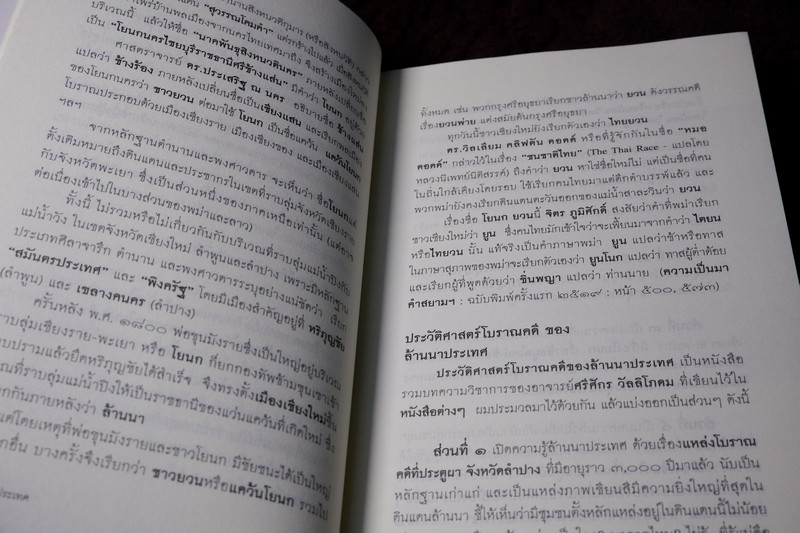 ตำนานสิงหนวติกุมาร (หรือสิงหนวัติ) กล่าว
"สุวรรณโคมคำ" แต่ร้างไปแล้ว เมื่อสิงหนวติ
ไพร่บ้านพลเมืองจากนครไทยเทศมาถึง จึงสร้างเมืองใหม่
บริเวณนี้ แล้วให้ชื่อ "นาคพันธุสิงหนวตินคร" ภายหลังเปลี่ยนชื่อ
เป็น "โยนกนครไชยบุรีราชธานีศรีช้างแส่น" มีคำว่า โยนก อยู่ด้วย
ศาสตราจารย์ ดร.ประเสริฐ ณ นคร อธิบายชื่อ ช้างแส่น
แปลว่า ช้างร้อง ภายหลังเปลี่ยนชื่อเป็นเชียงแสน และเรียกพลเมือง
ของโยนกนครว่า ชาวยวน ต่อมาใช้ โยนก เป็นชื่อแคว้น แคว้นโยนก
โบราณประกอบด้วยเมืองเชียงราย เมืองเชียงของ และเมืองเชียงแสน
ฯลฯ
จากหลักฐานตำนานและพงศาวดาร จะเห็นว่า ชื่อโยนกแต่
ดั้งเดิมหมายถึงดินแดนและประชากรในเขตที่ราบลุ่มจังหวัดเชียงราย
กับจังหวัดพะเยา ซึ่งเป็นส่วนหนึ่งของภาคเหนือเท่านั้น (แต่อาจ
ต่อเนื่องเข้าไปในบางส่วนของพม่าและลาว)
ทั้งนี้ ไม่รวมหรือไม่เกี่ยวกับกับบริเวณที่ราบลุ่มแม่น้ำปิงกับ
แม่น้ำวัง ในเขตจังหวัดเชียงใหม่ ลำพูนและลำปาง เพราะมีหลักฐาน
ประเภทศิลาจารึก ตำนาน และพงศาวดารระบุอย่างแน่ชัดว่า เรียก
"สมันตรประเทศ" และ "พิงครัฐ" โดยมีเมืองสำคัญอยู่ที่ หริภุญชัย
(ลำพูน) และ เขลางคนคร (ลำปาง)
ครั้นหลัง พ.ศ. ๑๘๐๐ พ่อขุนมังรายซึ่งเป็นใหญ่อยู่บริเวณ
ราบลุ่มเชียงราย-พะเยา หรือ โยนก ก็ยกกองทัพข้ามขุนเขาเข้า
ปราบปรามแล้วยึดหริภุญชัยได้สำเร็จ จึงทรงตั้งเมืองเชียงใหม่ขึ้น
ณที่ราบลุ่มแม่น้ำปิงให้เป็นราชธานีของแว่นแคว้นที่เกิดใหม่ ซึ่ง
กกันภายหลังว่า ล้านนา
แต่โดยเหตุที่พ่อขุนมังรายและชาวโยนก มีชัยชนะได้เป็นใหญ่
กอื่น บางครั้งจึงเรียกว่า ชาวยวนหรือแคว้นโยนก รวมไป
ประเทศ
ทั้งหมด เช่น พวกกรุงศรีอยุธยาเรียกชาวล้านนาว่า ยวน ดังวรรณคดี
เรื่องยวนพ่าย แต่งสมัยต้นกรุงศรีอยุธยา
ทุกวันนี้ชาวเชียงใหม่ยังเรียกตัวเองว่า ไทยยวน
ดร.วิลเลียม คลิฟตัน ดอดด์ หรือที่รู้จักกันในชื่อ "หมอ
ดอดด์" กล่าวไว้ในเรื่อง "ชนชาติไทย" (The Thai Race - แปลโดย
หลวงนิเพทย์นิติสรรค์) ถึงคำว่า ยวน หาใช่ชื่อใหม่ไม่ แต่เป็นชื่อที่คน
ในถิ่นใกล้เคียงโดยรอบ ใช้เรียกคนไทยมาแต่ดึกดำบรรพ์แล้ว และ
พวกพม่ายังคงเรียกดินแดนตะวันออกของแม่น้ำสาละวินว่า ยวน
เรื่องชื่อ โยนก ยวนนี้ จิตร ภูมิศักดิ์ สงสัยว่าคำที่พม่าเรียก
ชาวเชียงใหม่ว่า ยูน ซึ่งคนไทยมักเข้าใจว่าจะเพี้ยนมาจากคำว่า ไตยน
หรือไทยวน นั้น แท้จริงเป็นคำภาษาพม่า ยูน แปลว่าข้าหรือทาส
ในภาษาสุภาพของพม่าจะเรียกตัวเองว่า ยูนโนก แปลว่า ทาสผู้ต่ำต้อย
และเรียกผู้ที่พูดด้วยว่า ชินพญา แปลว่า ท่านนาย (ความเป็นมา
คำสยามฯ : ฉบับพิมพ์ครั้งแรก ๒๕๑๙ : หน้า ๕๐๐, ๕๗๓)
ประวัติศาสตร์โบราณคดี ของ
ล้านนาประเทศ
ประวัติศาสตร์โบราณคดีของล้านนาประเทศ เป็นหนังสือ
รวมบทความวิชาการของอาจารย์ศรีศักร วัลลิโภดม ที่เขียนไว้ใน
หนังสือต่างๆ ผมประมวลมาไว้ด้วยกัน แล้วแบ่งออกเป็นส่วนๆ ดังนี้
ส่วนที่ ๑ เปิดความรู้ล้านนาประเทศ ด้วยเรื่องแหล่งโบราณ
คดีที่ประตูผา จังหวัดลำปาง ที่มีอายุราว ๓,๐๐๐ ปีมาแล้ว นับเป็น
หลักฐานเก่าแก่ และเป็นแหล่งภาพเขียนสีมีความยิ่งใหญ่ที่สุดใน
ดินแดนล้านนา ชี้ให้เห็นว่ามีชุมชนตั้งหลักแหล่งอยู่ในดินแดนนี้ไม่น้อย